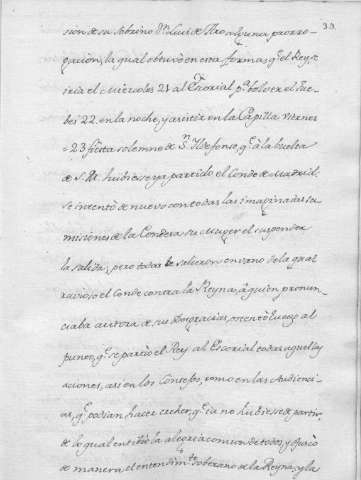 33.
sion de su sobrino Dn. Luis de Haro alguna prorro-
gacion, la qual obtuvo en esta forma; q.e el Rey se
iria el Miercoles 21 al Escorial pa. bolver el Jue-
bes 22. en la noche, y asistir en la Capilla Viernes
23 fiesta solemne de Sn. Ildefonso, q.e a la buelta
de S.M. hubiese ya partido el Conde de Madrid:
se intentò de nuevo con todas las imaginadas su-
misiones de la Condesa su Muger el suspender
la salida; pero todas le salieron en vano de la qual
ravioso el Conde contra la Reyna, à quien pronun-
ciaba autora de sus desgracias, luego al
punto, q.e se partiò el Rey al Escorial todas aquellas
aciones, asi en los Consejos, como en las Audienci-
as, q.e podian hacer creher, q.e ya no hubiese de partir,
de lo qual entibiò la alegria comun de todos, y
de manera el entendim.to soberano de la Reyna, y la